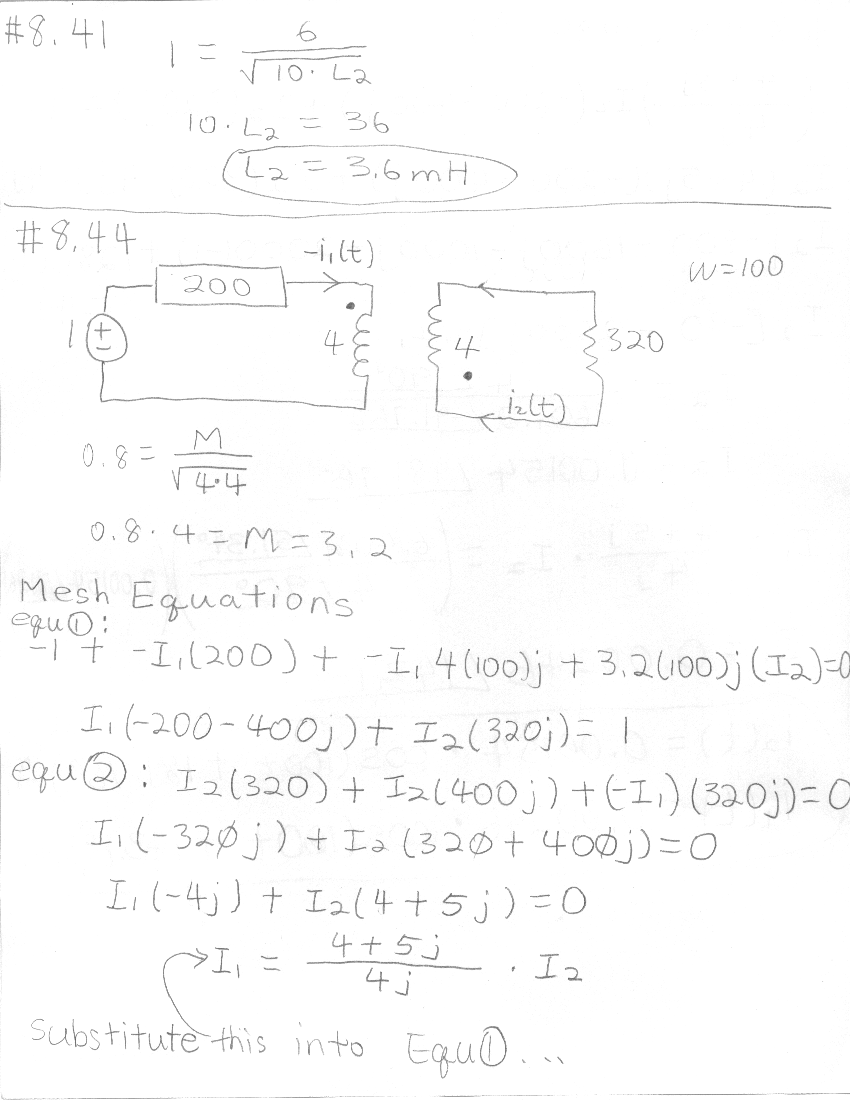 #8.41
1 = 6 / √(10 · L₂)
10 · L₂ = 36
L₂ = 3.6 mH
#8.44
-i₁(t)
w=100
200
1
+
−
4
4
320
i₂(t)
0.8 = M / √(4·4)
0.8 · 4 = M = 3.2
Mesh Equations
equ①:
-1 + -I₁(200) + -I₁ 4(100)j + 3.2(100)j(I₂)=0
I₁(-200-400j) + I₂(320j) = 1
equ②: I₂(320) + I₂(400j) + (-I₁)(320j)=0
I₁(-320j) + I₂(320+400j)=0
I₁(-4j) + I₂(4+5j)=0
I₁ = (4+5j) / 4j · I₂
Substitute this into Equ①...